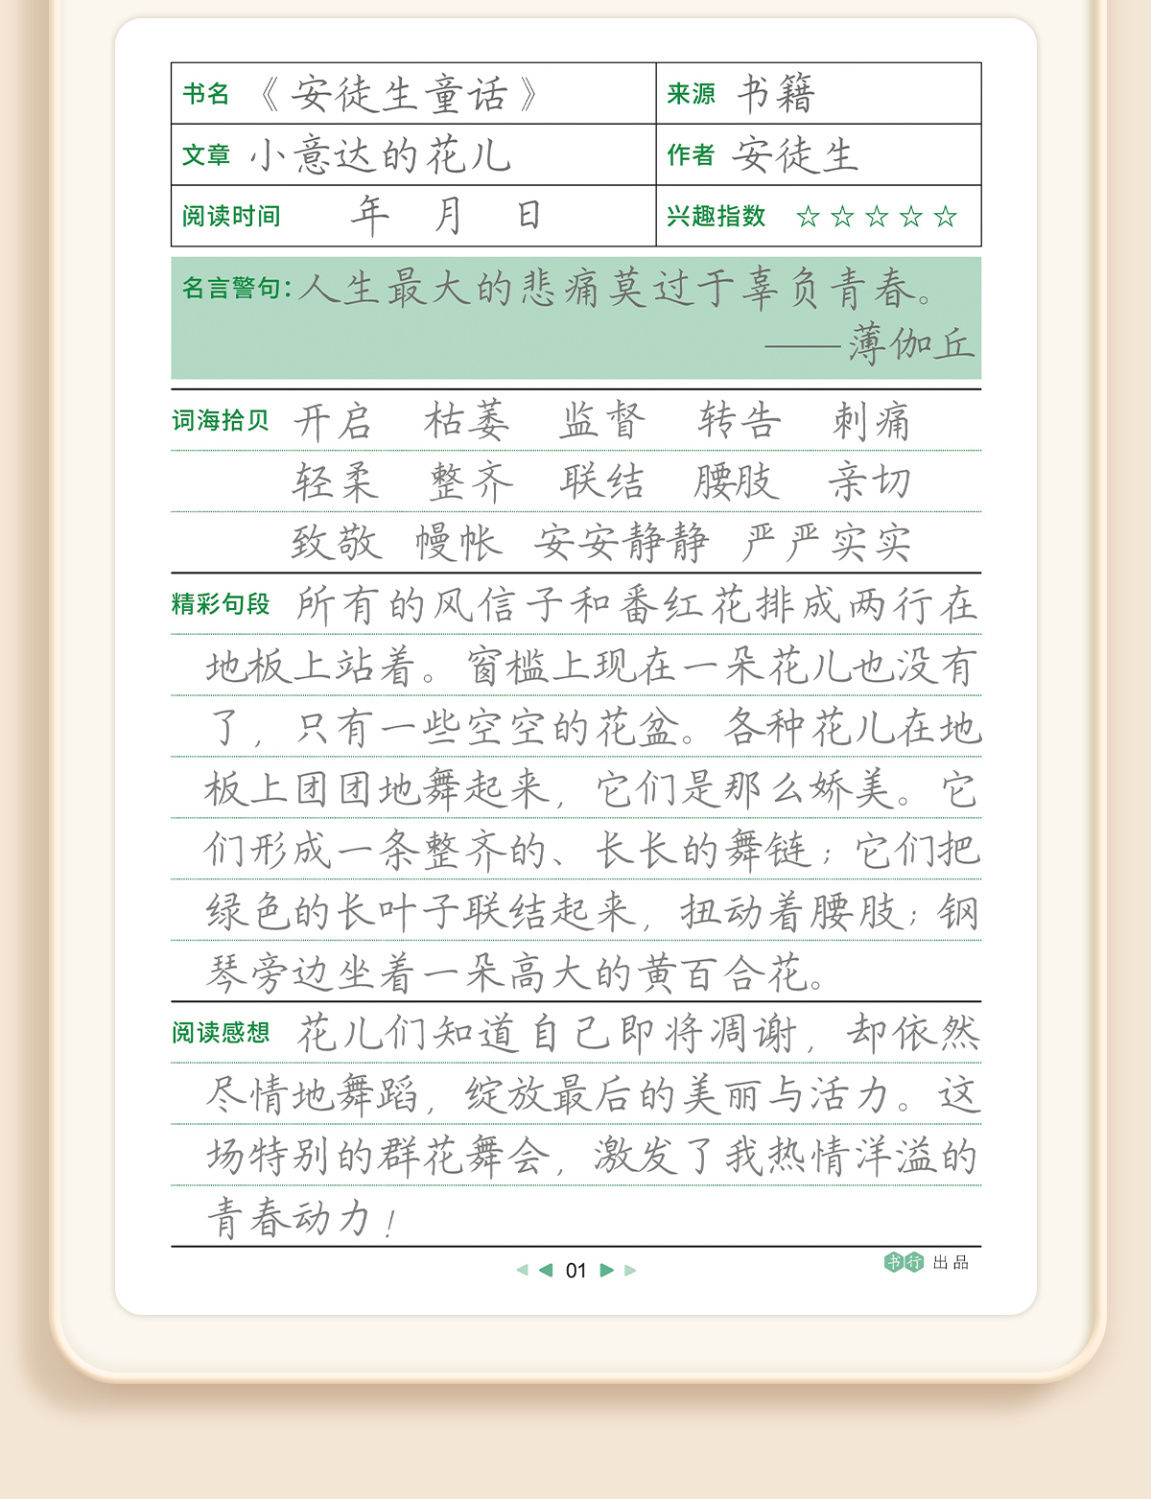 书名 《安徒生童话》 来源 书籍
文章 小意达的花儿 作者 安徒生
阅读时间 年 月 日 兴趣指数 ☆☆☆☆☆
名言警句：人生最大的悲痛莫过于辜负青春。
——薄伽丘
词海拾贝 开启 枯萎 监督 转告 刺痛
轻柔 整齐 联结 腰肢 亲切
致敬 幔帐 安安静静 严严实实
精彩句段 所有的风信子和番红花排成两行在
地板上站着。窗槛上现在一朵花儿也没有
了，只有一些空空的花盆。各种花儿在地
板上团团地舞起来，它们是那么娇美。它
们形成一条整齐的、长长的舞链；它们把
绿色的长叶子联结起来，扭动着腰肢；钢
琴旁边坐着一朵高大的黄百合花。
阅读感想 花儿们知道自己即将凋谢，却依然
尽情地舞蹈，绽放最后的美丽与活力。这
场特别的群花舞会，激发了我热情洋溢的
青春动力！
01
书行 出品